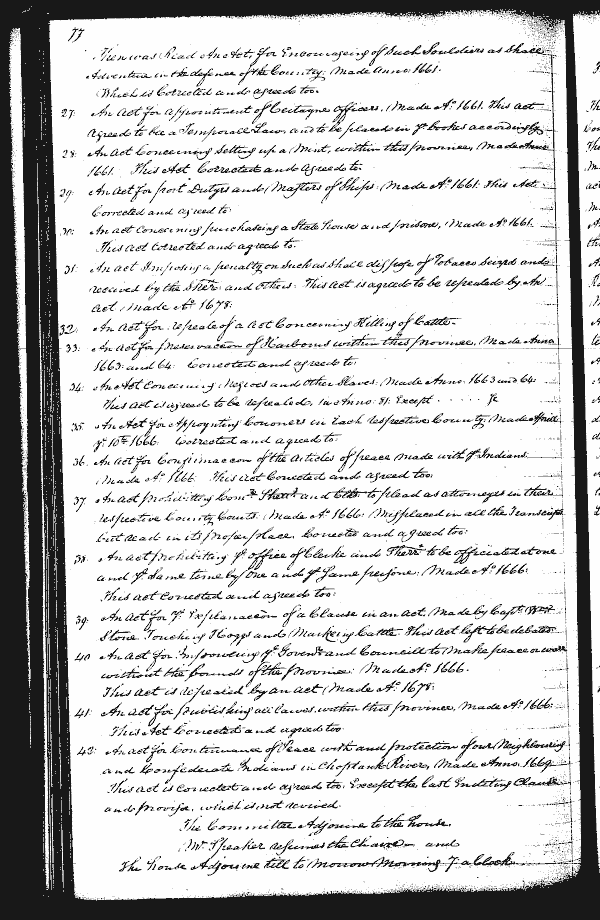 77
Then was Read An Act, for Encourageing of Such Souldiers as Shall
Adventure in the defence of the Country, Made Anno 1661.
Which is Corrected and agreed to.
27: An Act for appointment of Certayne officers, Made Ao 1661. This act
agreed to be a Temporall Law, and to be placed in ye bookes accordingly
28: An Act Concerning Setting up a Mint, within this province, Made Anno
1661. This Act Corrected and agreed to.
29: An Act for port Dutyes and Masters of Ships: Made Ao 1661: This Act
Corrected and agreed to.
30: An act Concerning purchaseing a State house and prison, Made Ao 1661.
This act Corrected and agreed to.
31: An act Imposing a penalty on Such as Shall dispose of Tobacco Seized and
received by the Sherr: and others: This Act is agreed to be repealed by An
act, Made Ao 1678:
32. An Act for repeale of a act Concerning Killing of Cattle.
33: An Act for preservacon of Harbours within this province, Made Anno
1663: and 64: Corrected and agreed to.
34: An Act Concerning Negroes and other Slaves, Made Anno 1663 and 64:
This act is agreed to be repealed, in Anno: 81: Except
35. An Act for Appoynting Coroners in Each respective County Made Aprill
ye 10th 1666 Corrected and agreed to:
36. An Act for Confirmacon of the Articles of peace Made with ye Indians.
Made Ao 1666. This act Corrected and agreed too.
37. An act prohibitting Comrs Sherrs and Clks to plead as attorneyes in their
respective County Courts, Made Ao 1666. Misplaced in all the Transcripts
but read in its proper place, Corrected and agreed too:
38: An act prohibitting ye office of Clerke and Sherr to be officiated at one
and ye Same time by One and ye Same persone, Made Ao 1666.
This act Corrected and agreed too:
39. An Act for ye Explanacon of a Clause in an act, Made by Capt Wm
Stone Touching Hoggs and Marking Cattle. This Act left to be debated
40 An Act for Impowering ye Governr and Councill to Make peace or warr
without the bounds of the province: Made Ao 1666.
This act is repealed by an act Made Ao 1678:
41: An Act for publishing all lawes within this province, Made Ao 1666:
This Act Corrected and agreed too:
42: An act for Continuance of Peace with and protection of our Neighbouring
and Confederate Indians in Choptank River, Made Anno 1669.
This act is corrected and agreed too Except the last Enacting Clause
and proviso, which is not revived.
The Committee Adjourne to the house.
Mr Speaker resumes the Chaire and
The house Adjourne till to Morrow Morning 7 a Clock